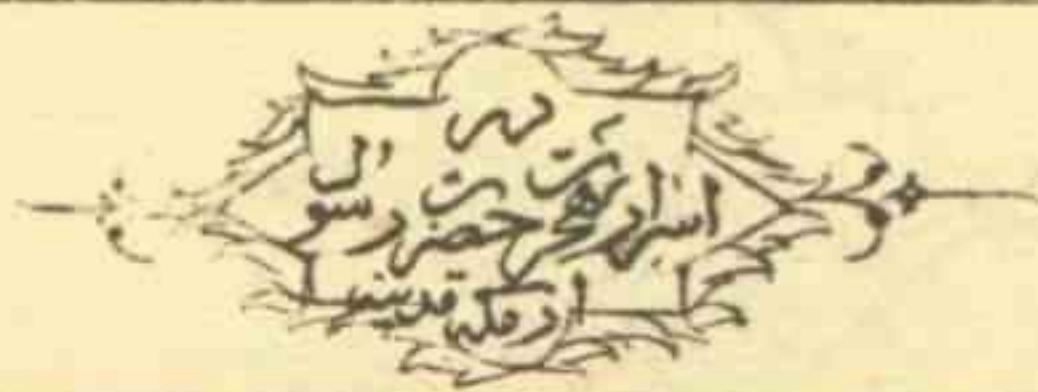 در
اسرار هجرت حضرت رسول
از مکه بمدینه